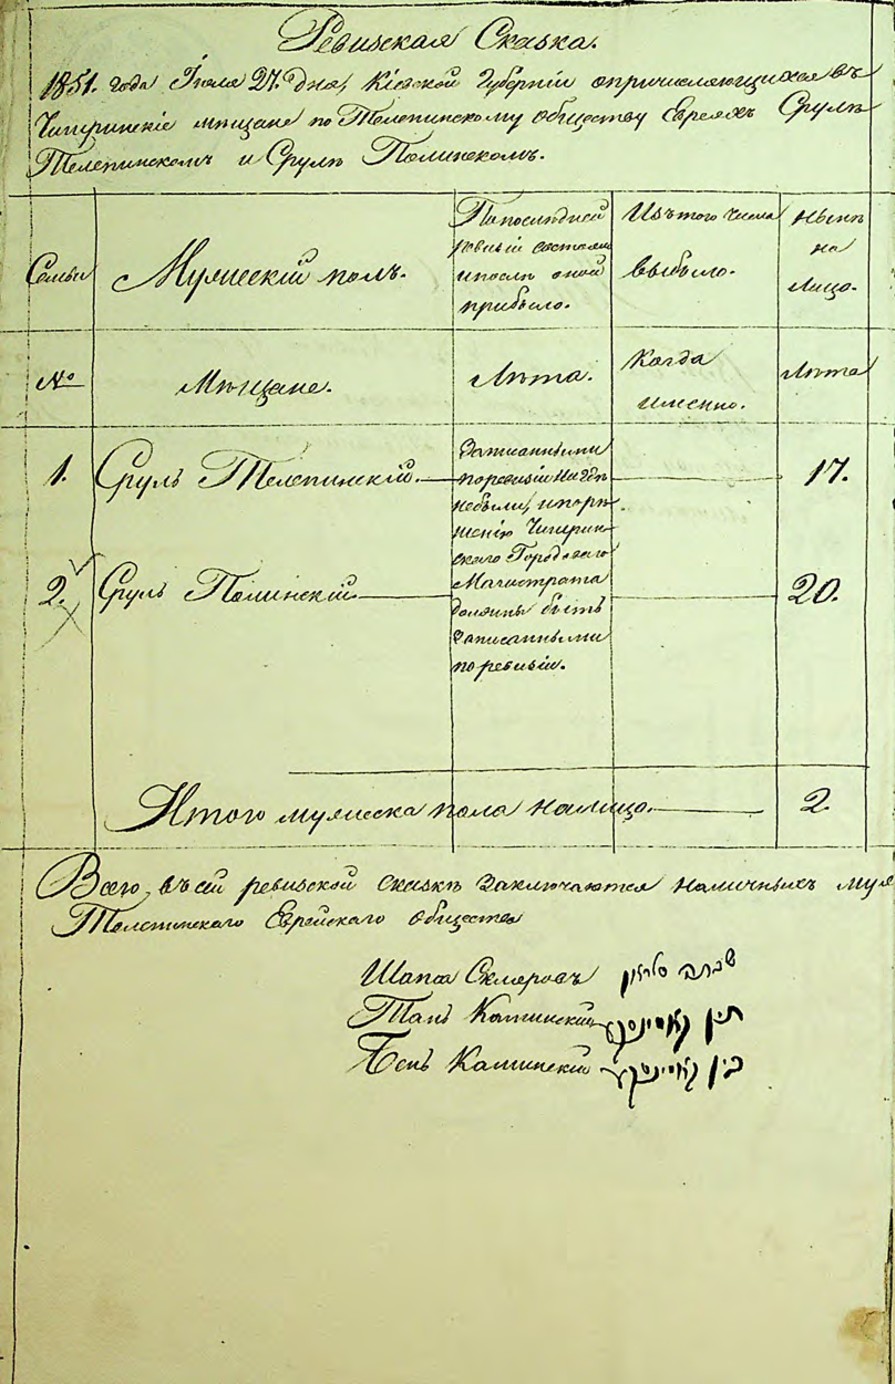 Ревизская Сказка.
1851. года Іюля 27. дня, Кіевской Губерніи опричисляющихся въ
Чигиринскіе мѣщане по Телепинскому обществу Евреяхъ Срулѣ
Телепинскомъ и Срулѣ Полинскомъ.
Семьи
Мужескій полъ.
По последней
ревизіи состояло
и послѣ оной
прибыло.
Изъ того числа
выбыло.
Нынѣ
на
лицо.
№
Мѣщане.
Лѣта.
Когда
именно.
Лѣта
1. Сруль Телепинскій. 17.
2. Сруль Полинскій. 20.
Записанными
по ревизіи нигдѣ
небыли, и по рѣ-
шенію Чигирин-
скаго Городоваго
Магистрата
должны быть
записанными
по ревизіи.
Итого мужеска пола налицо. 2.
Всего, въ сей ревизской сказкѣ заключаются наличныхъ муж
Телепинскаго Еврейскаго общества
Шапса Скляровъ
Каминскій
Бенъ Каминскій